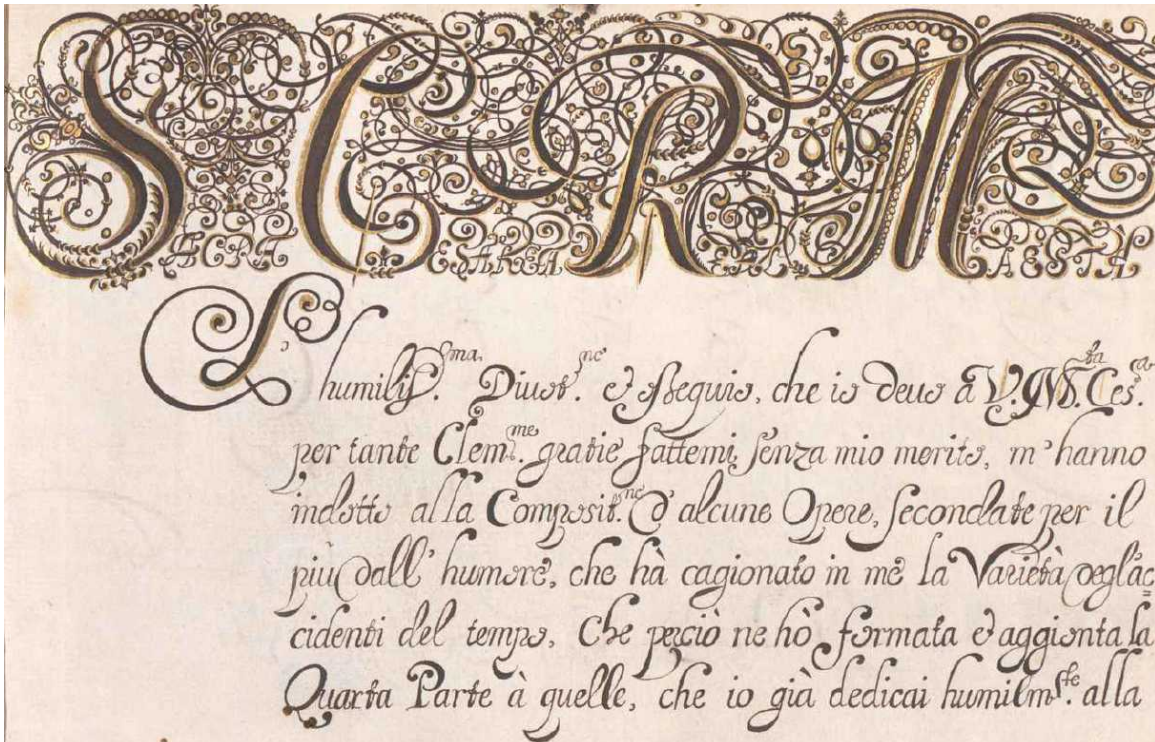 SACRA CESAREA REAL MAESTA
L'humiliss.ma Diuot.ne et osseguio, che io deuo a V. M.tà Ces.a
per tante Clem.me gratie fattemi, senza mio merito, m'hanno
indotto alla Composit.ne d'alcune Opere, secondate per il
più dall' humore, che hà cagionato in mè la Varietà degl'ac=
cidenti del tempo, Che perciò ne hò formata et aggionta la
Quarta Parte à quelle, che io già dedicai humilm.te alla